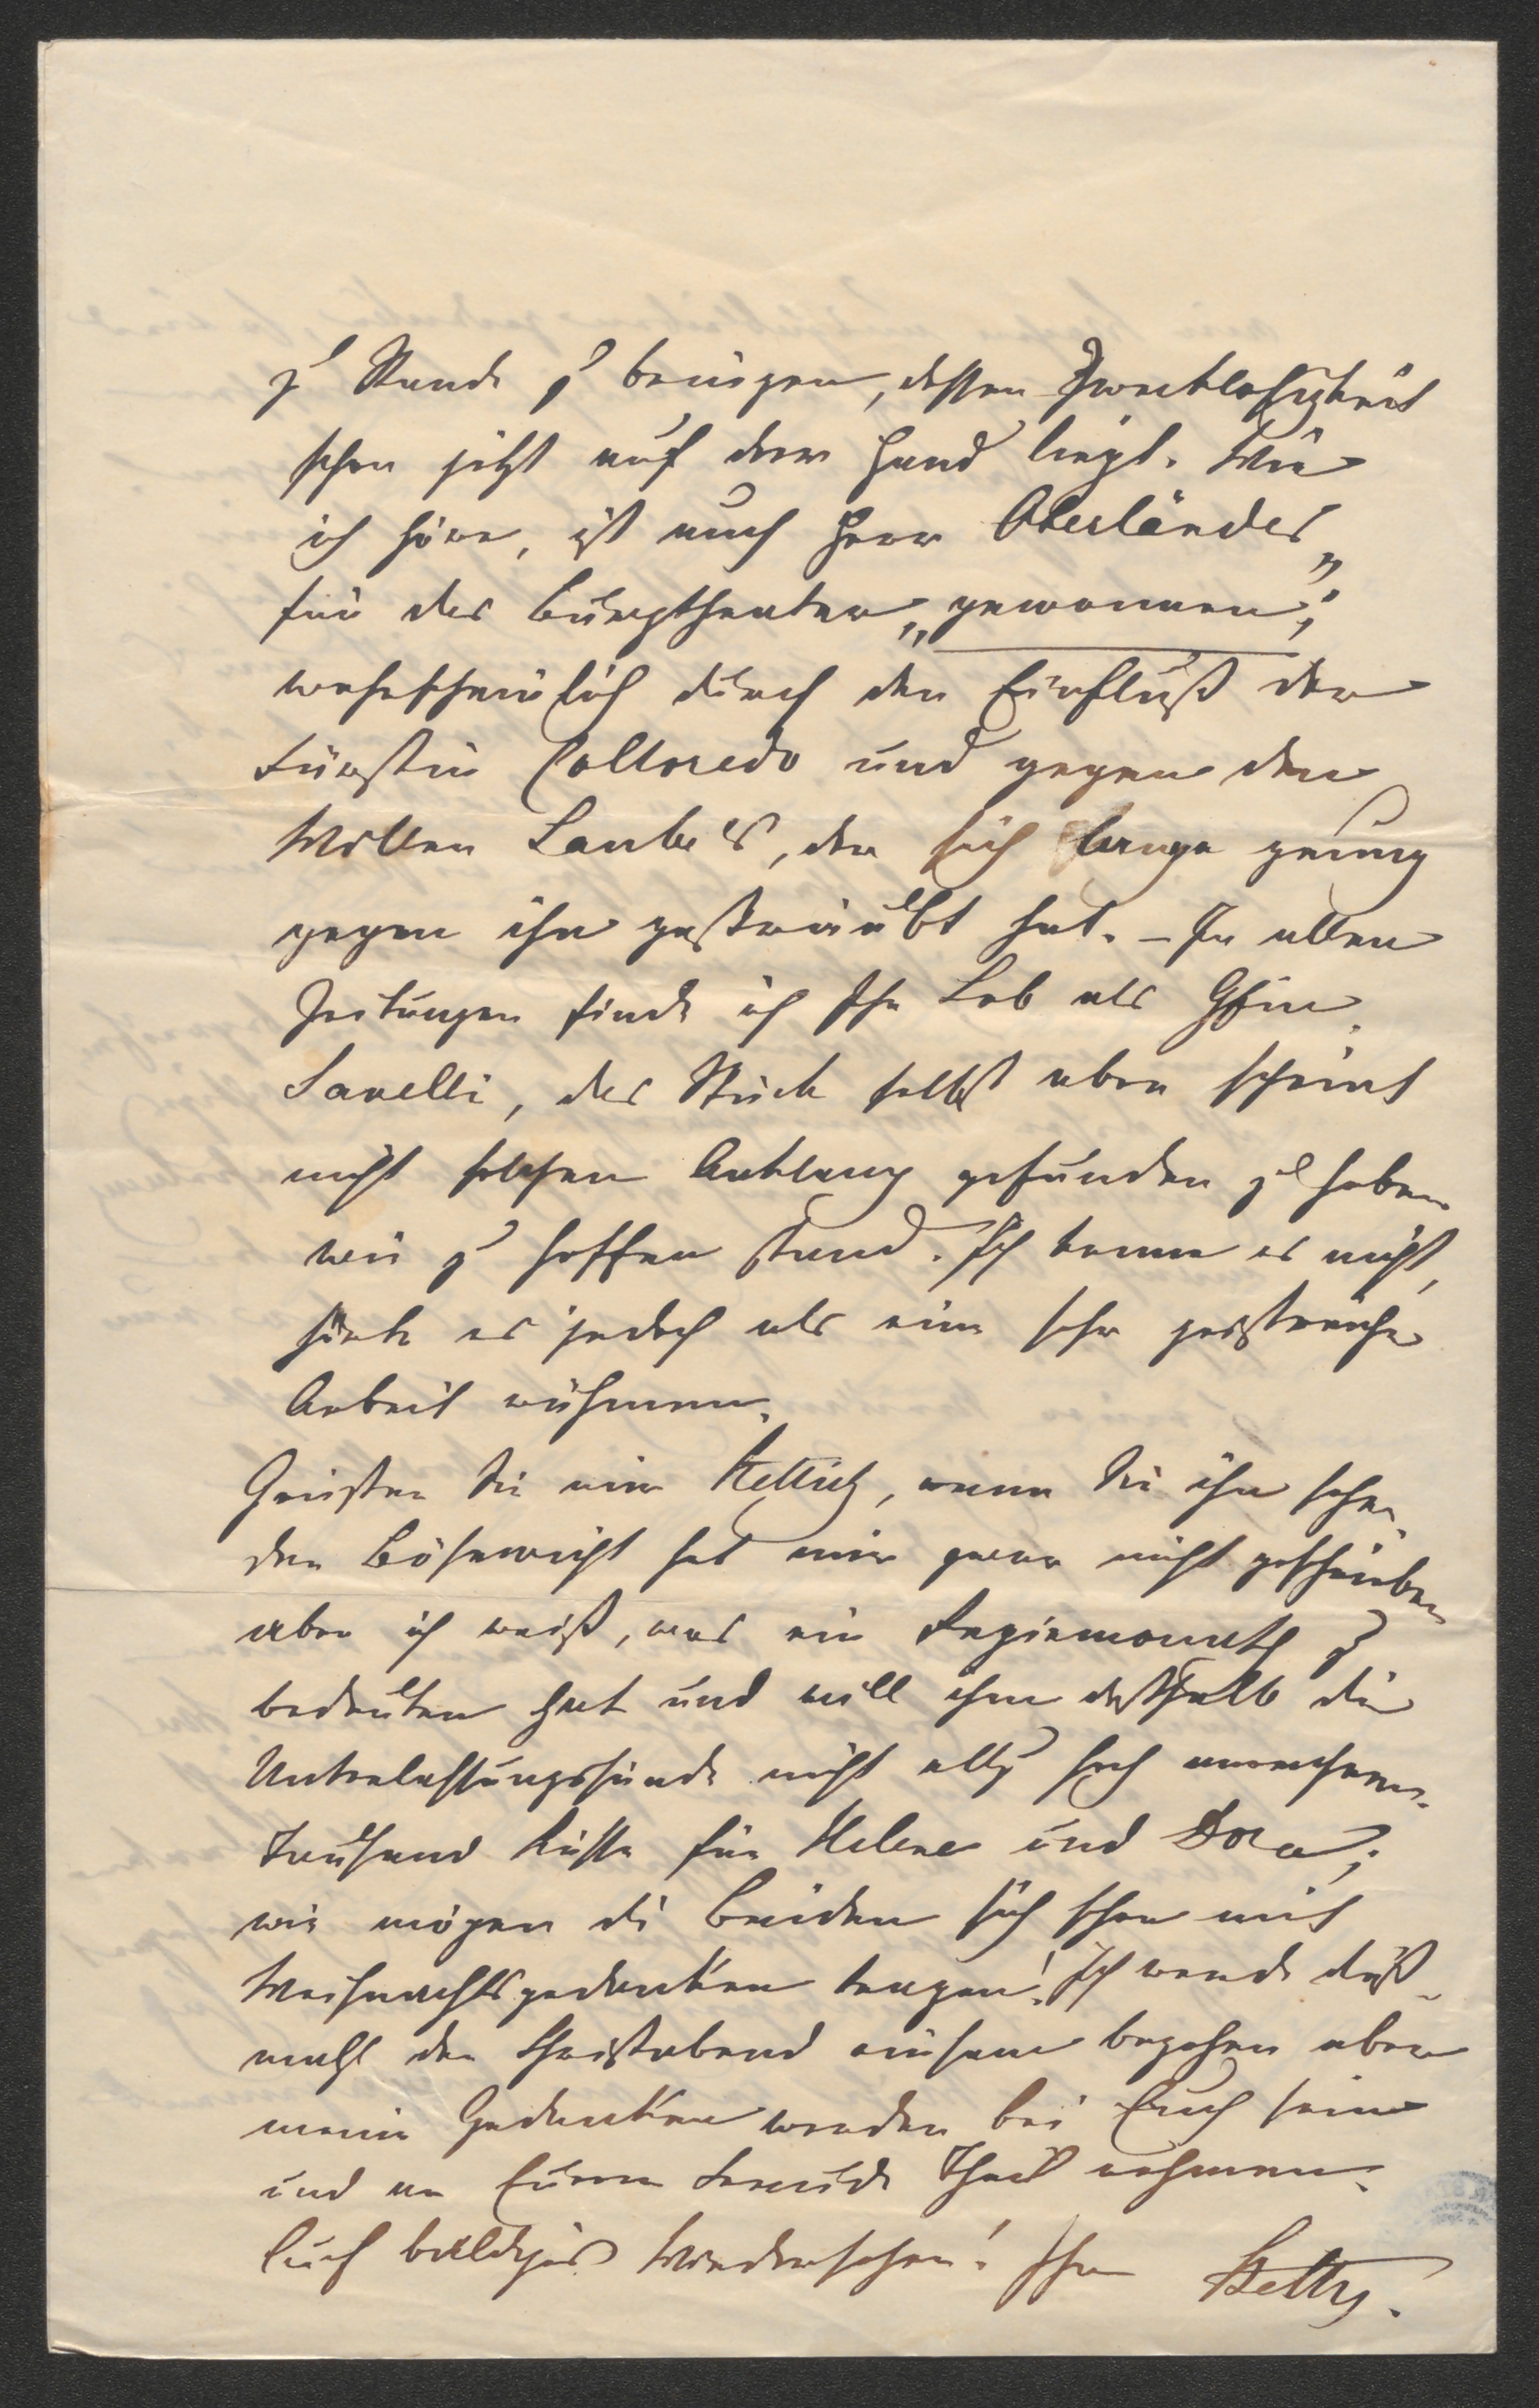 zu Stande zu bringen, dessen Zwecklosigkeit
schon jetzt auf der Hand liegt. Wie
ich höre, ist auch Herr Oberländer
für das Burgtheater „gewonnen";
wahrscheinlich durch den Einfluß der
Fürstin Colloredo und gegen den
Willen Laube's, der sich lange genug
gegen ihn gesträubt hat. – In allen
Zeitungen finde ich Ihr Lob als Gfin.
Savelli, das Stück selbst aber scheint
nicht solchen Anklang gefunden zu haben
wie zu hoffen stand. Ich kenne es nicht,
hörte es jedoch als eine sehr geistreiche
Arbeit rühmen.
Grüßen Sie mir Rettich, wenn Sie ihn sehen,
der Bösewicht hat mir zwar nicht geschrieben
aber ich weiß, was ein Regiemonath zu
bedeuten hat und will ihm deßhalb die
Unterlassungssünde nicht allzu hoch anrechnen.
Tausend Küsse für Helene und Dora;
wie mögen die Beiden sich schon mit
Weihnachtsgedanken tragen! Ich werde dieß-
mahl den Christabend einsam begehen aber
meine Gedanken werden bei Euch sein
und an Eurer Freude Theil nehmen.
Auf baldiges Wiedersehen! Ihr Hetty.